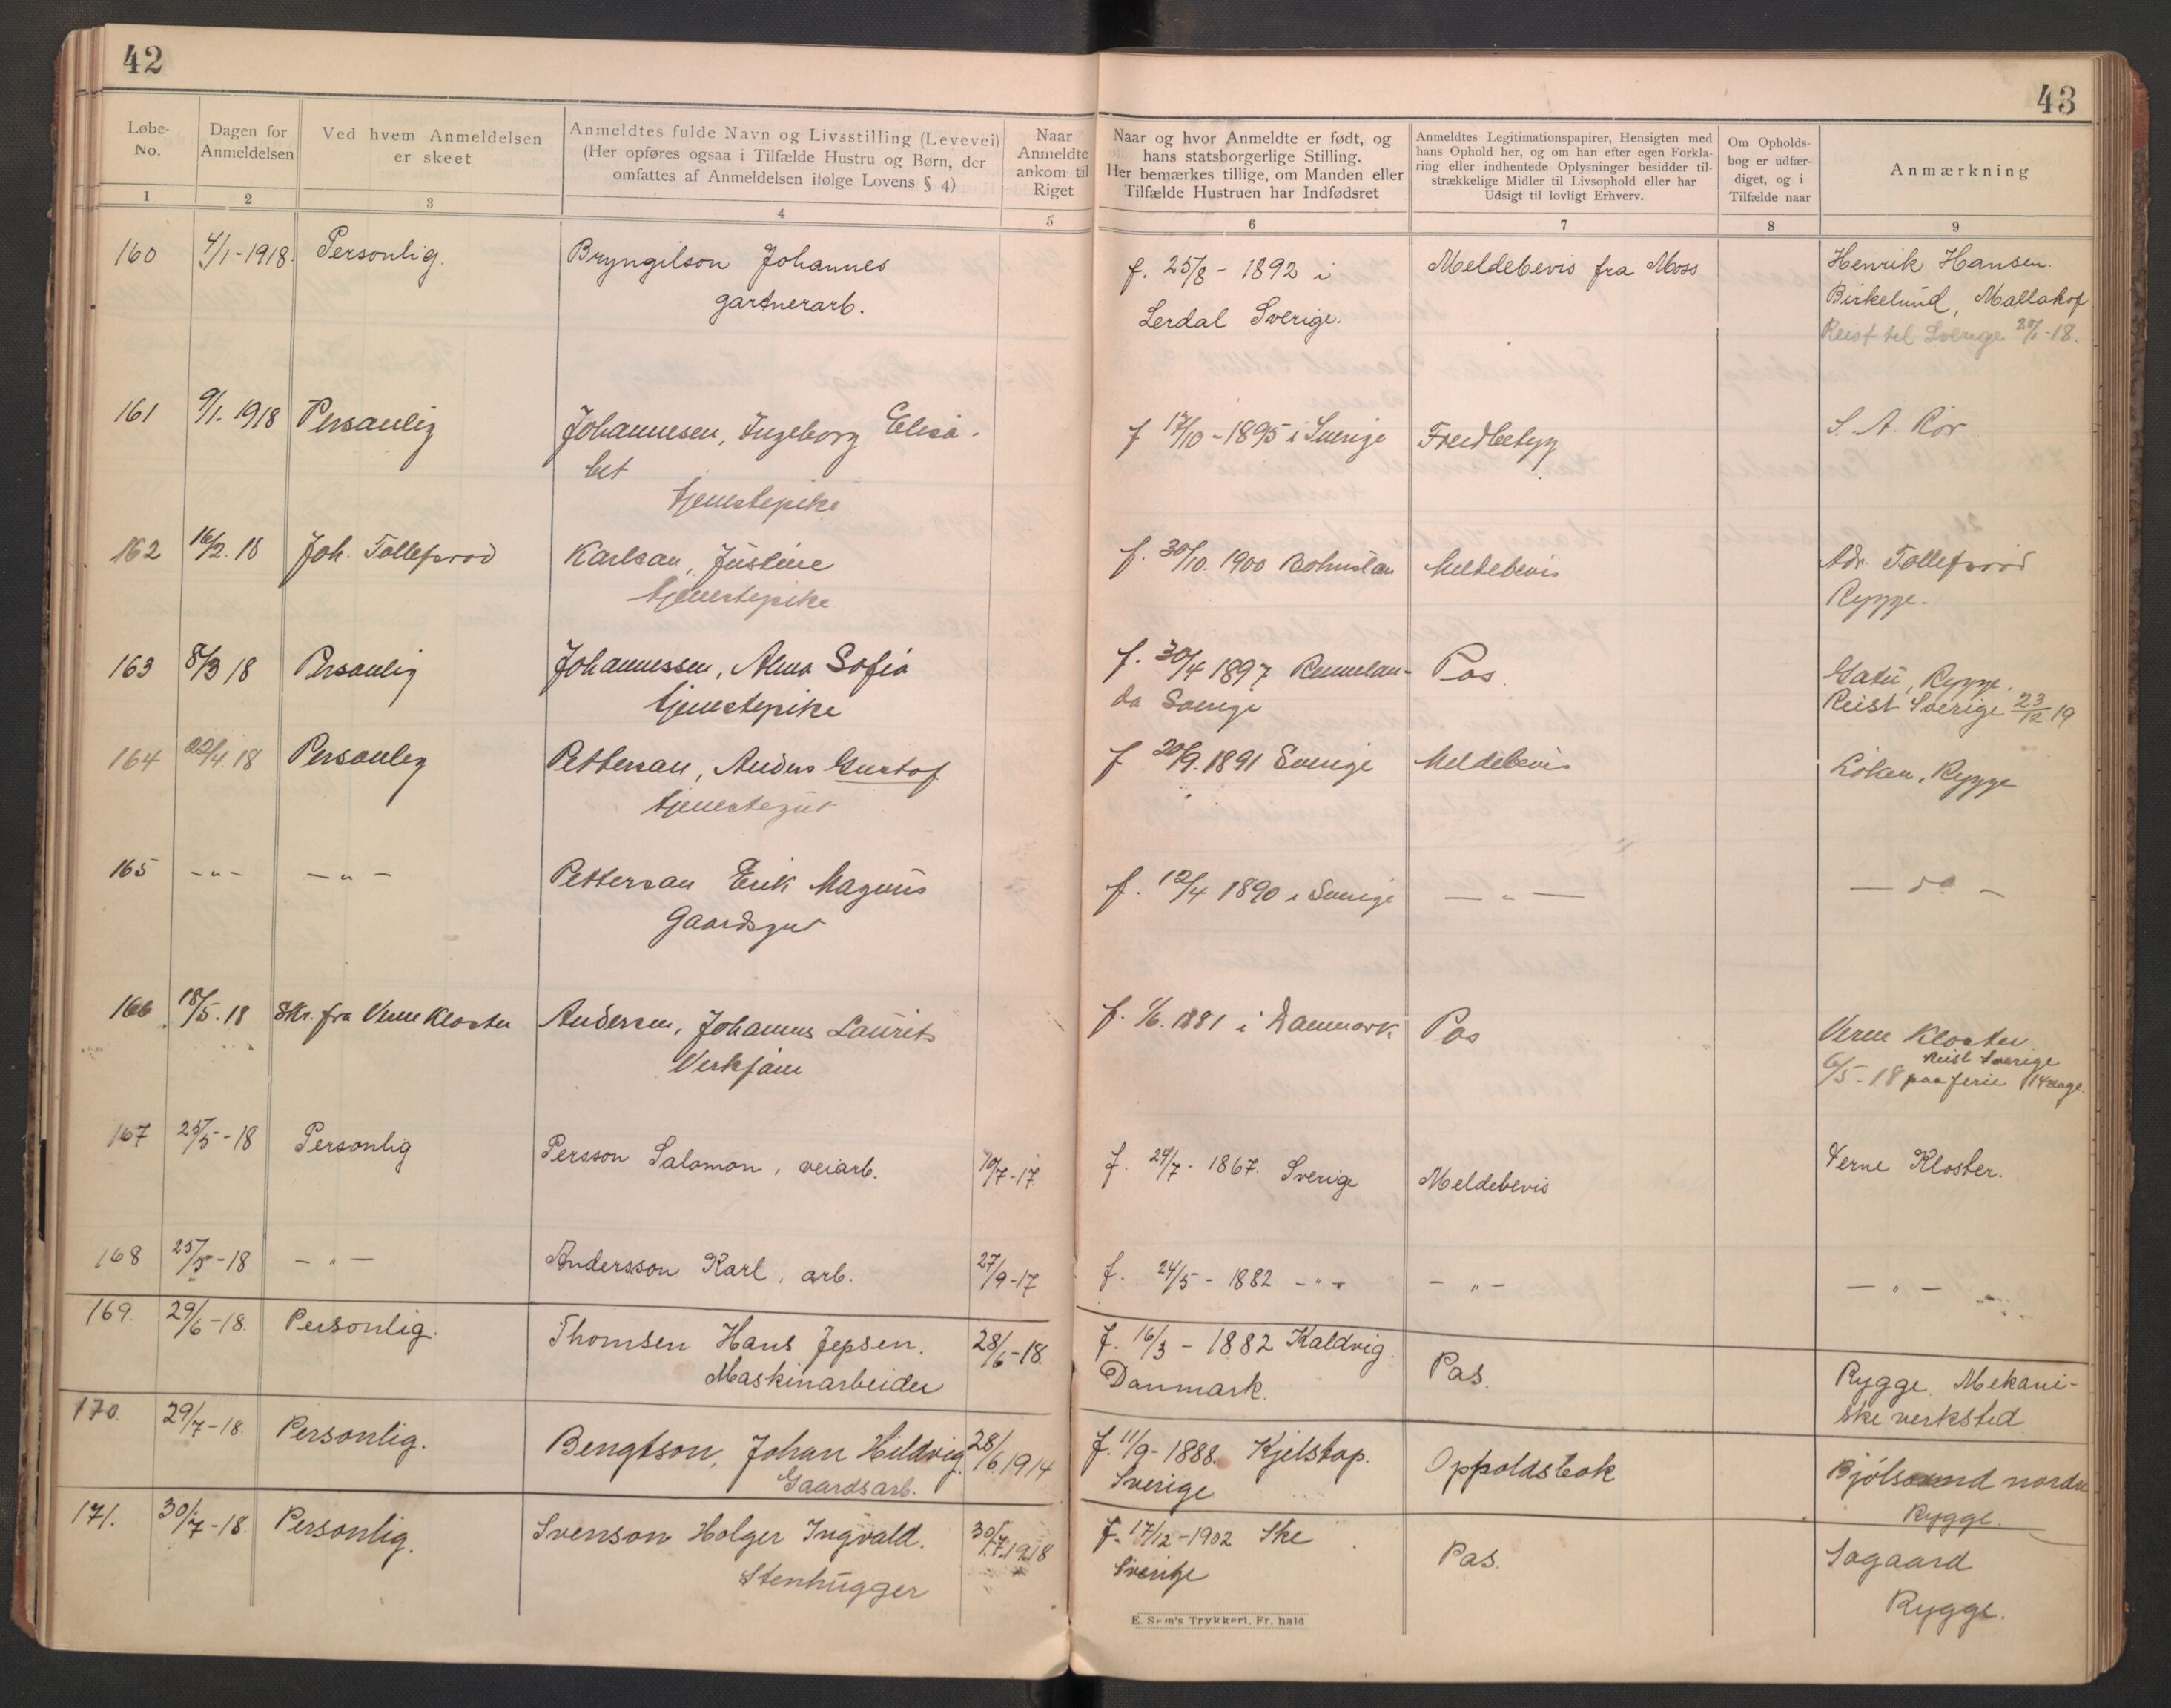 42
43
Løbe-No.
Dagen for Anmeldelsen
Ved hvem Anmeldelsen er skeet
Anmeldtes fulde Navn og Livsstilling (Levevei)
(Her opføres ogsaa i Tilfælde Hustru og Børn, der
omfattes af Anmeldelsen ifølge Lovens § 4)
Naar Anmeldte ankom til Riget
Naar og hvor Anmeldte er født, og
hans statsborgerlige Stilling.
Her bemærkes tillige, om Manden eller
Tilfælde Hustruen har Indfødsret
Anmeldtes Legitimationspapirer, Hensigten med
hans Ophold her, og om han efter egen Forkla-
ring eller indhentede Oplysninger besidder til-
strækkelige Midler til Livsophold eller har
Udsigt til lovligt Erhverv.
Om Opholds-
bog er udfær-
diget, og i
Tilfælde naar
Anmærkning
1 2 3 4 5 6 7 8 9
160 4/1-1918. Personlig. Bryngilson Johannes f. 25/8 - 1892 i Meldebevis fra Moss Henrik Hansen.
gartnerarb. Lerdal Sverige. Birkelund, Mallakof
Reist til Sverige 20/1-18.
161 9/1. 1918 Personlig Johannesen, Ingeborg Elisa- f 17/10-1895 i Sverige Fredbetyg S. A. Rör
bet
tjenestepike
162 16/2. 18 Joh. Tollefsrod Karlsen, Justine f. 30/10. 1900 Bohuslan Meldebevis Adr. Tollefsrød
tjenestepike Rygge.
163 8/3 18 Personlig Johannessen, Alma Sofia f. 30/4 1897 Rennelan- Pas. Gatu, Rygge.
tjenestepike da Sverige Reist Sverige 23/12 19
164 22/4. 18 Personlig Pettersen, Anders Gustof f 20/9. 1891 Sverige Meldebevis Rygge
tjenestegut
165 - " - - " - Pettersen Erik Magnus f. 12/4 1890 i Sverige - " - - do -
Gaardsgut
166 18/5. 18 Skr. fra Verne Kloster Andersen, Johannes Laurits f. 1/6. 1881 i Danmark Pas Verne Kloster
Reist Sverige
6/5-18 paa ferie 14 dage.
167 25/5-18 Personlig Persson Salomon, veiarb. 10/7-17. f. 24/7- 1867. Sverige Meldebevis Verne Kloster.
168 25/5-18 - " - Andersson Karl, arb. 27/9-17 f. 24/5 - 1882 - " - - " - - " -
169. 29/6-18. Personlig. Thomsen Hans Jepsen. 28/6-18. f. 16/3 - 1882 Kaldvig. Pas. Rygge Mekani-
Maskinarbeider Danmark. ske verksted
170. 29/7-18. Personlig. Bengtson, Johan Hildvig. 28/6 1914 f. 11/9-1888. Kjelstap. Oppoldsbok Bjölsund nordre
Gaardsarb. Sverige Rygge.
171. 30/7-18. Personlig. Svenson Holger Ingvald. 30/7.1918 f. 17/12-1902 Ske Pas. Sogaard
Stenhugger Sverige Rygge.
E. Sem's Trykkeri. Fr. hald